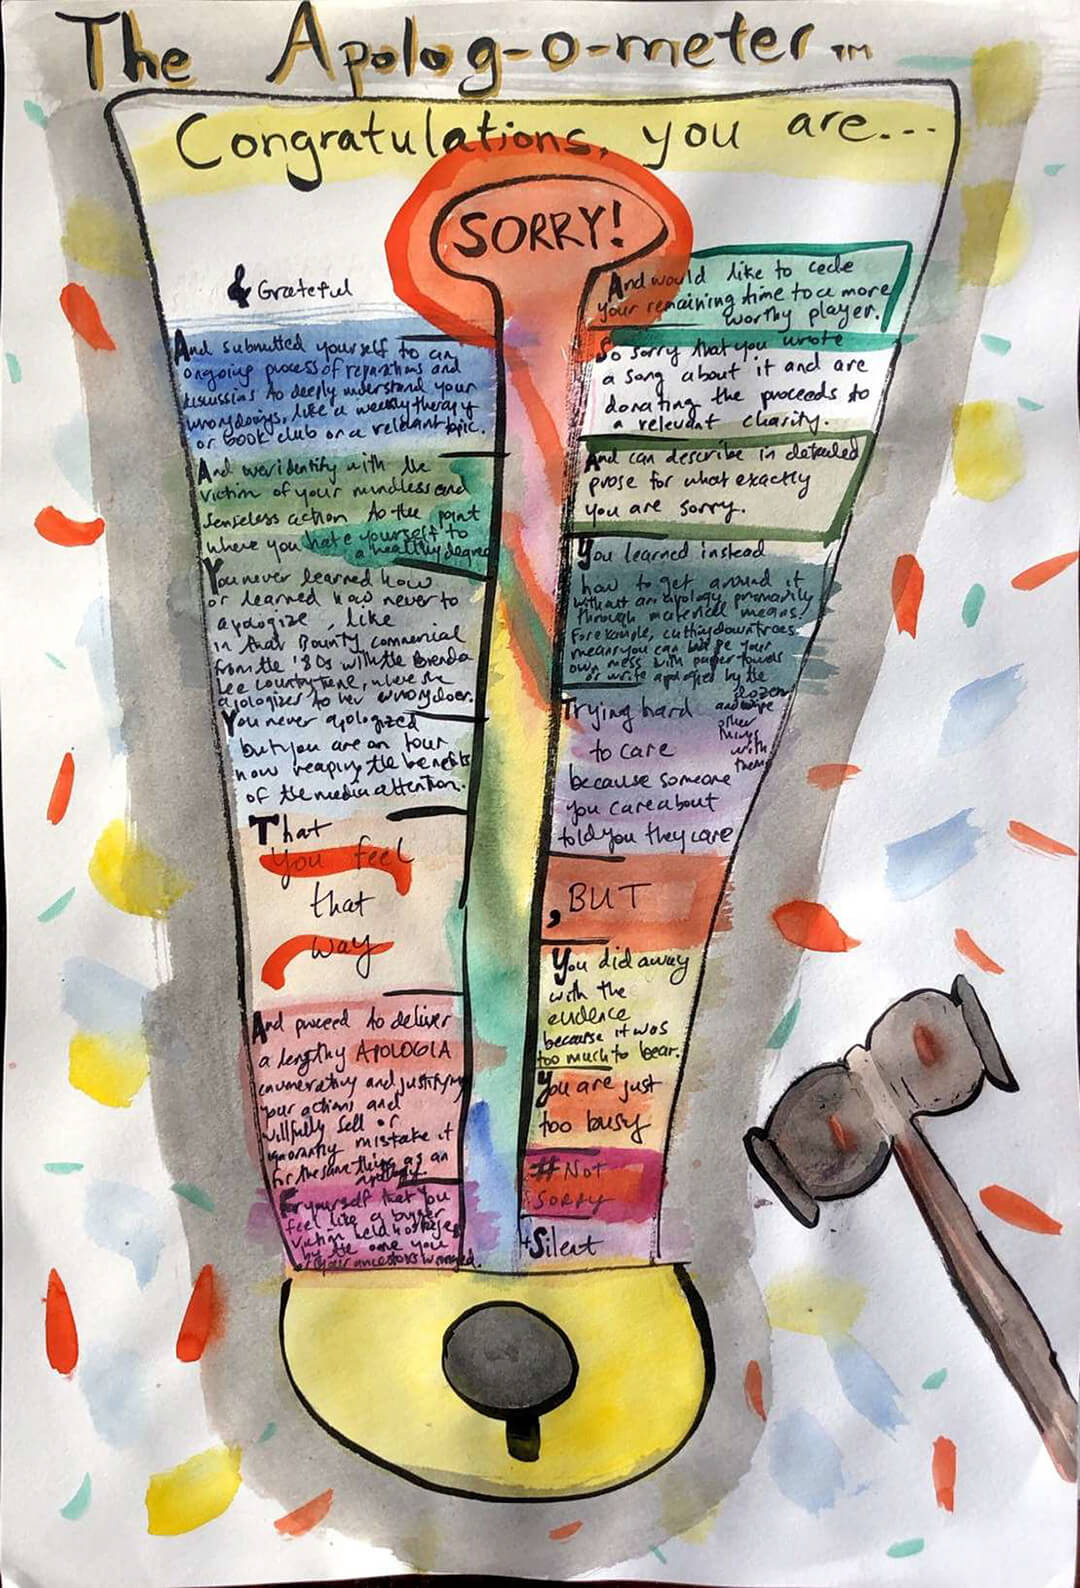 The Apolog-o-meter TM
Congratulations, you are...
SORRY!
& Grateful
And submitted yourself to an
ongoing process of reparations and
discussions to deeply understand your
wrongdoings, like a weekly therapy
or book club on a relevant topic.
And overidentify with the
victim of your mindless and
senseless action to the point
where you hate yourself to
a healthy degree
You never learned how
or learned how never to
apologize, like
in that Bounty commercial
from the '80s with the Brenda
Lee country tune, where she
apologizes to her wrongdoer.
You never apologized
but you are on tour
now reaping the benefits
of the media attention.
That
you feel
that
way
And proceed to deliver
a lengthy APOLOGIA
enumerating and justifying
your actions and
willfully sell or
ignorantly mistake it
for the same thing as an
apology.
For yourself that you
feel like a bigger
victim held hostage
by the one you
or your ancestors wronged.
And would like to cede
your remaining time to a more
worthy player.
So sorry that you wrote
a song about it and are
donating the proceeds to
a relevant charity.
And can describe in detailed
prose for what exactly
you are sorry.
You learned instead
how to get around it
without an apology primarily
through material means.
For example, cutting down trees
means you can wipe your
own mess with paper towels
or write apologies by the
dozen
and wipe
other
things
with
them
Trying hard
to care
because someone
you care about
told you they care
, BUT
You did away
with the
evidence
because it was
too much to bear.
You are just
too busy
#Not
SORRY
+Silent